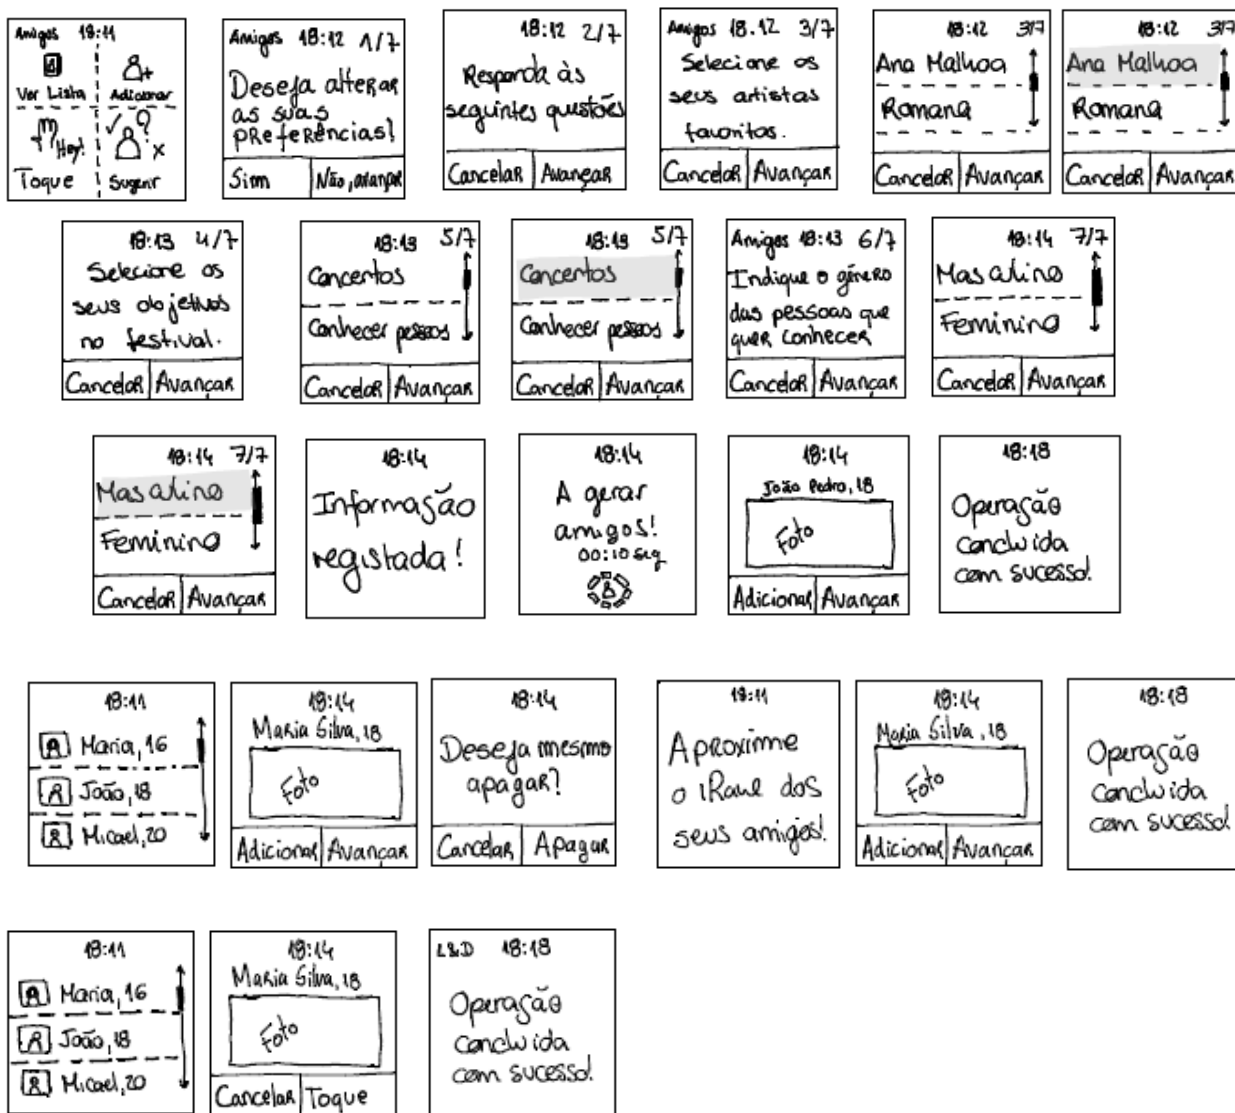 Amigos 18:11
Ver Lista
Adicionar
Hey!
Toque
Sugerir
Amigos 18:12 1/7
Deseja alterar
as suas
preferências?
Sim
Não, avançar
18:12 2/7
Responda às
seguintes questões
Cancelar
Avançar
Amigos 18.12 3/7
Selecione os
seus artistas
favoritos.
Cancelar
Avançar
18:12 3/7
Ana Malhoa
Romana
Cancelar
Avançar
18:12 3/7
Ana Malhoa
Romana
Cancelar
Avançar
18:13 4/7
Selecione os
seus objetivos
no festival.
Cancelar
Avançar
18:13 5/7
Concertos
Conhecer pessoas
Cancelar
Avançar
18:13 5/7
Concertos
Conhecer pessoas
Cancelar
Avançar
Amigos 18:13 6/7
Indique o género
das pessoas que
quer conhecer
Cancelar
Avançar
18:14 7/7
Masculino
Feminino
Cancelar
Avançar
18:14 7/7
Masculino
Feminino
Cancelar
Avançar
18:14
Informação
registada!
18:14
A gerar
amigos!
00:10 seg
18:14
João Pedro, 18
Foto
Adicionar
Avançar
18:18
Operação
concluida
com sucesso!
18:11
Maria, 16
João, 18
Micael, 20
18:14
Maria Silva, 18
Foto
Adicionar
Avançar
18:14
Deseja mesmo
apagar?
Cancelar
Apagar
18:11
Aproxime
o iRave dos
seus amigos!
18:14
Maria Silva, 18
Foto
Adicionar
Avançar
18:18
Operação
concluida
com sucesso!
18:11
Maria, 16
João, 18
Micael, 20
18:14
Maria Silva, 18
Foto
Cancelar
Toque
L&D 18:18
Operação
concluida
com sucesso!